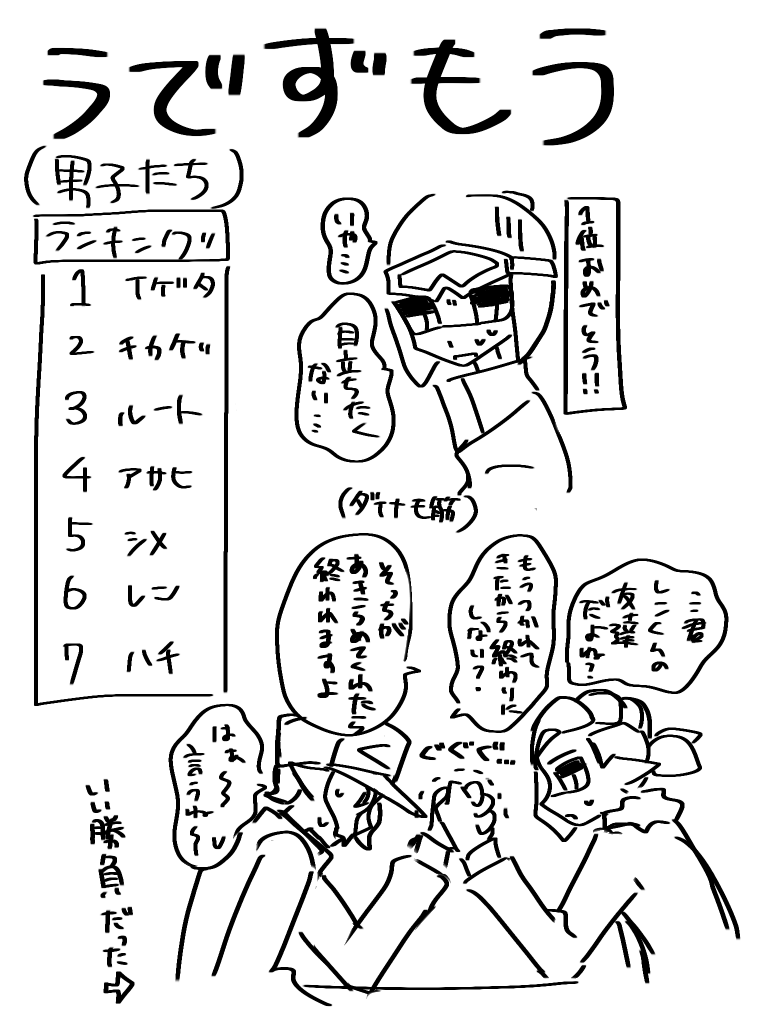 うでずもう
(男子たち)
ランキング
1 イゲタ
2 チカゲ
3 ルート
4 アサヒ
5 シメ
6 レン
7 ハチ
1位おめでとう!!
いや…
目立ちたく
ない…
(ダイナモ筋)
君
レンくんの
友達
だよね?
もうつかれて
きたから終わりに
しない?
そっちが
あきらめてくれたら
終われますよ
ぐぐぐ…
はぁ~
言うね~
いい勝負だった⇨